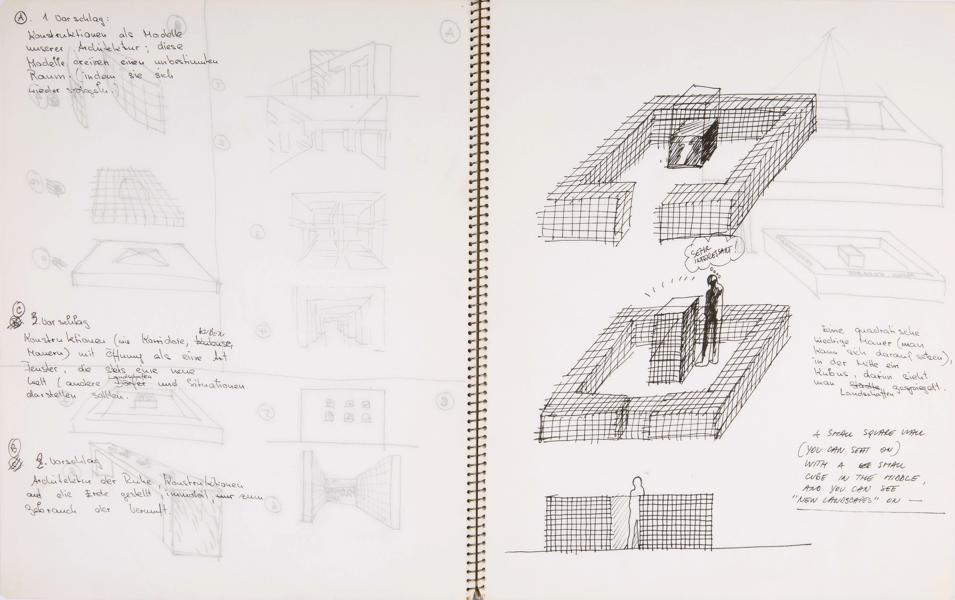 A. 1 Vorschlag:
Konstruktionen als Modelle
unserer Architektur; diese
Modelle kreiren einen unbestimmten
Raum (indem sie sich
wieder spiegeln.)
C
3. Vorschlag
Konstruktionen (wie Korridore,
Mauern) mit Öffnung als eine Art
Fenster, die stets eine neue
Landschaften
Welt (andere Dörfer und Situationen
darstellen sollten.
B
2. Vorschlag
Architektur der Ruhe, Konstruktionen
auf die Erde gestellt, immobil, nur zum
Gebrauch der Vernunft.
A
B
SEHR
INTERESSANT!
Eine quadratische
niedrige Mauer (man
kann sich darauf setzen),
in der Mitte ein
Kubus, darin sieht
man Städte gespiegelt.
Landschaften
A SMALL SQUARE WALL
(YOU CAN SEAT ON)
WITH A SMALL
CUBE IN THE MIDDLE,
AND YOU CAN SEE
"NEW LANDSCAPES" ON —